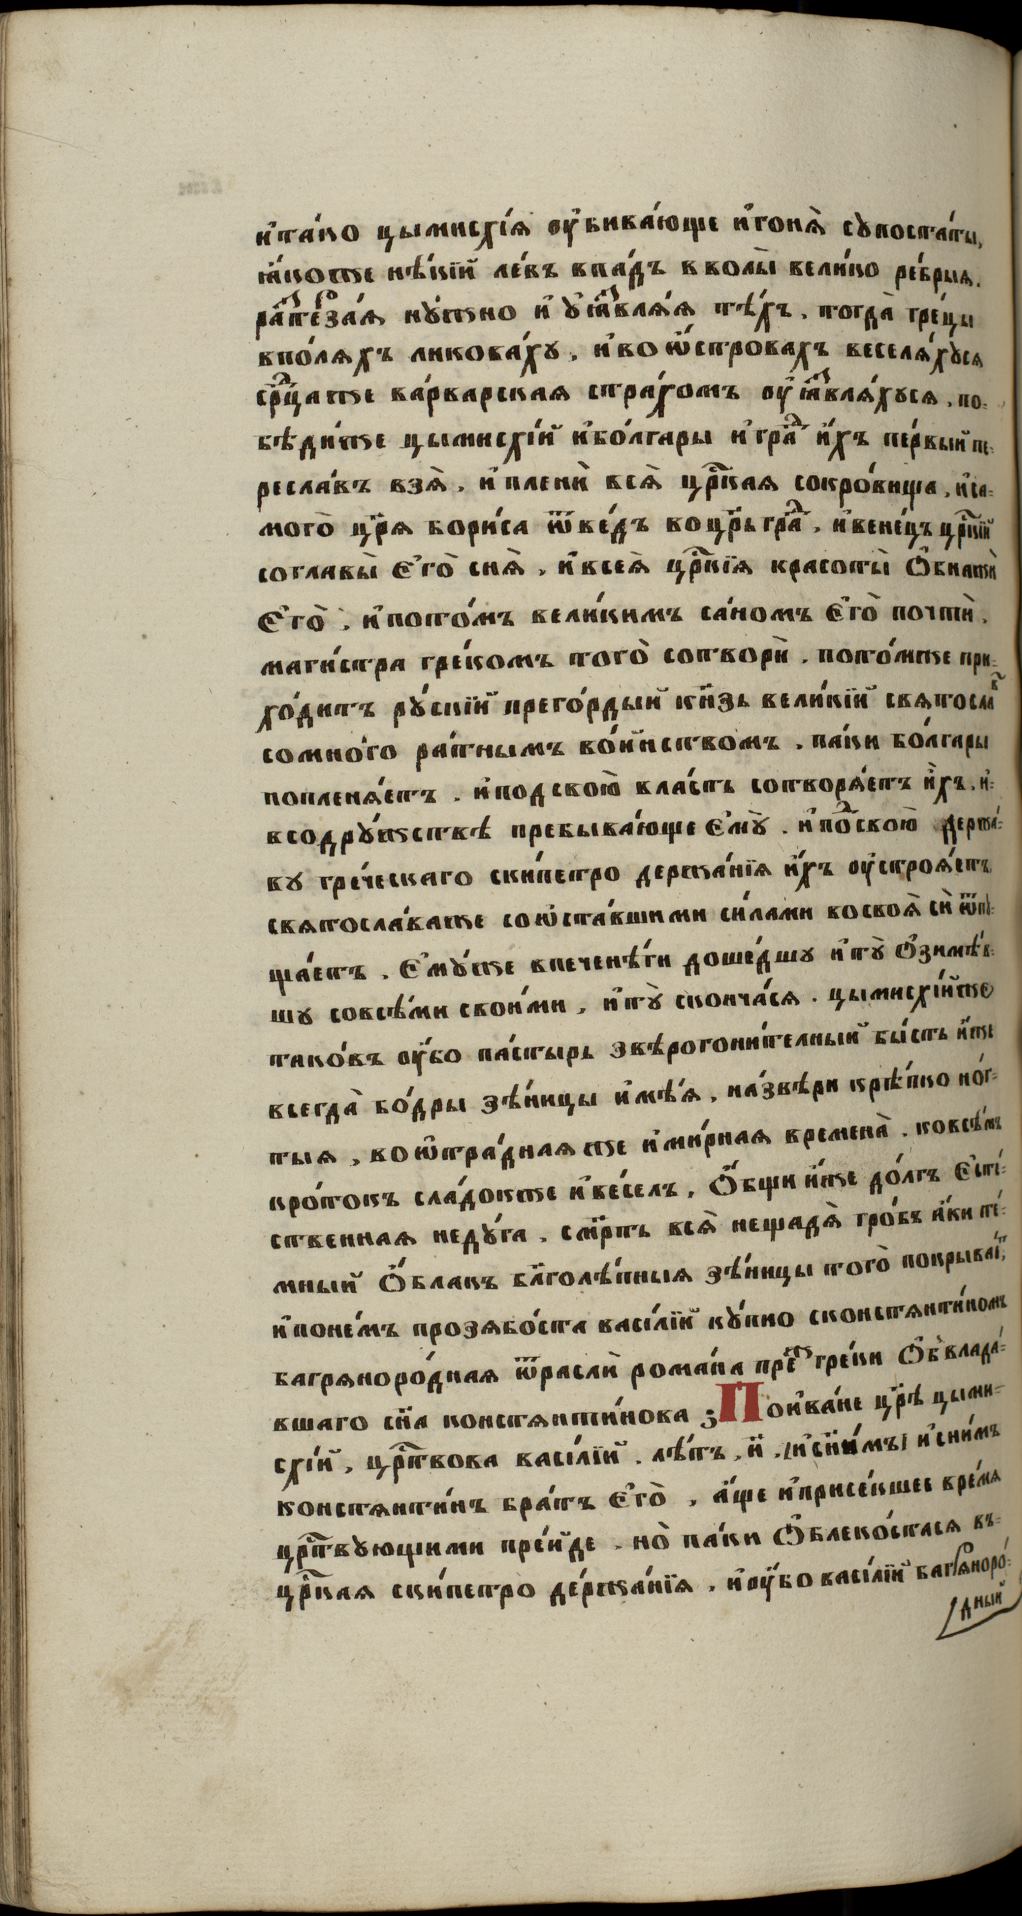 и҆та́ко цымисхі́я ѹ҆бива́юще и҆гоня̀ сꙋпоста́ты,
ꙗ҆́коже нѣ́кїй ле́въ впа́дъ кволы̀ вели́ко ре́брыя.
ра́стерза́ѧ нꙋ́жно и҆ ꙋ҆ꙗвлѧ́ѧ тѣ́хъ. тогда̀ гре́цы
впо́лѧхъ ликова́хꙋ, и҆во ѻ҆́стровахъ веселѧ́хꙋсѧ
ср҃ца́же ва́рварская стра́хомъ ѹ҆ꙗвлѧ́хꙋсѧ, по-
бѣди́же цымисхі́й и҆бо́лгары и҆гра́д и҆́хъ пе́рвый пе-
ресла́въ взѧ̀. и҆ пленѝ всѧ̀ црⷭ҇кая сокро́вища, и҆са-
мого̀ цр҃ѧ бори́са ѿве́дъ воцр҃ьгра́д, и҆вене́цъ црⷭ҇кїй
соглавы̀ є҆го̀ снѧ̀, и҆всеѧ̀ црⷭ҇кїѧ красоты̀ ѡ҆бнажѝ
є҆го̀, и҆пото́мъ вели́кимъ са́номъ є҆го̀ почтѝ,
маги́стра гре́комъ того̀ сотворѝ. пото́мже при-
хо́дитъ рꙋ́скїй прего́рдый кн҃зь вели́кїй свѧтосла́в
сомно́го ра́тнымъ во́инствомъ. па́ки бо́лгары
поплене́етъ. и҆подсвою̀ вла́сть сотворѧ́етъ и҆̀хъ. и҆-
всодрꙋ́жствѣ пребыва́юще є҆мꙋ̀. и҆подсвою̀ держа́-
вꙋ гре́ческаго ски́петро держа́нїѧ и҆́хъ ѹ҆строѧ́етъ
свѧтосла́важе соѡ҆ста́вшими си́лами восвоѧ̀ сѝ ѿпꙋ-
ща́етъ. є҆мꙋ́же впечене́ги доше́дшꙋ и҆тꙋ̀ ѡ҆зимѣ́в-
шꙋ совсѣ́ми свои́ми, и҆тꙋ̀ сконча́сѧ. цымисхі́йже
тако́въ ѹ҆́бо па́стырь звѣрогони́телный бы́сть и҆́же
всегда̀ бо́дры зѣ́ницы и҆мѣ́ѧ, на́звѣри крѣ́пко но́г-
тыѧ, во ѡ҆тра́дная же и҆ми́рная времена̀. ковсѣ́мъ
кро́токъ сла́докже и҆ве́селъ, ѡ҆́бщи и҆́же до́лгъ є҆сте́-
ственная недꙋ́га. сме́рть всѧ̀ нещадѧ̀ гро́бъ а҆́ки те́-
мный ѡ҆́блакъ бл҃голѣ́пныѧ зѣ́ницы того̀ покрыва́ет,
и҆понѐмъ прозѧбо́ста васі́лїй кꙋ́пно сконстѧнти́номъ
багрѧноро́дная ѿраслѝ рома́на пре́жⷣ гре́ки ѡ҆бълада́-
вшаго сн҃а констѧнти́нова ; Пои҆ва́не цр҃ѣ́ цыми-
схі́й, црⷭ҇твова васі́лїй. лѣ́тъ, н҃. и҆сни́мъ и҆сни́мъ
констѧнти́нъ бра́тъ є҆го̀, а҆́ще и҆присе́кшее вре́мѧ
црⷭ҇твꙋющими пре́йде. но̀ па́ки ѡ҆блеко́стасѧ въ-
црⷭ҇кая ски́петро держа́нїѧ, и҆ѹ҆́бо васі́лїй багрѧноро́-
дный